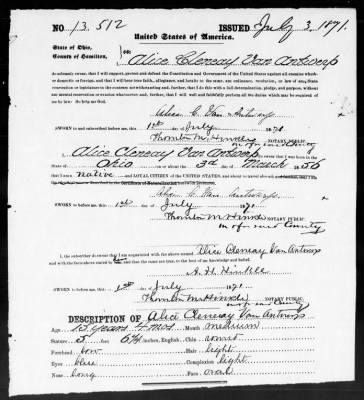 No 13,512 ISSUED July 3, 1871.
United States of America.
State of Ohio,
County of Hamilton,
Alice Cleneay Van Antwerp
do solemnly swear, that I will support, protect and defend the Constitution and Government of the United States against all enemies whether
domestic or foreign; and that I will bear true faith, allegiance, and loyalty to the same, any ordinance, resolution, or law of any State,
convention or legislature to the contrary notwithstanding; and further, that I do this with a full determination, pledge, and purpose, without
any mental reservation or evasion whatsoever; and, further, that I will well and faithfully perform all the duties which may be required of
me by law. So help me God.
Alice C. Van Antwerp
SWORN to and subscribed before me, this
1st July 1871
Thornton M. Hinkle
NOTARY PUBLIC.
I, Alice Cleneay Van Antwerp do swear that I was born in
Ohio 3rd March '56
native AND LOYAL CITIZEN OF THE UNITED STATES, and about to travel abroad
Alice C. Van Antwerp
SWORN to before me, this
1st July 1871
Thornton M. Hinkle
NOTARY PUBLIC.
in aforesaid County
I, the subscriber do swear that I am acquainted with the above named Alice Cleneay Van Antwerp
and with the facts above stated by her, and that the same are true, to the best of my knowledge and belief.
A. H. Hinkle
SWORN to before me, this
1st July 1871
Thornton M. Hinkle
NOTARY PUBLIC.
DESCRIPTION OF Alice Cleneay Van Antwerp
Age 15 years 4 mos Mouth medium
Stature 5 feet 6¾ inches, English, Chin round
Forehead low Hair light
Eyes blue Complexion light
Nose long Face oval